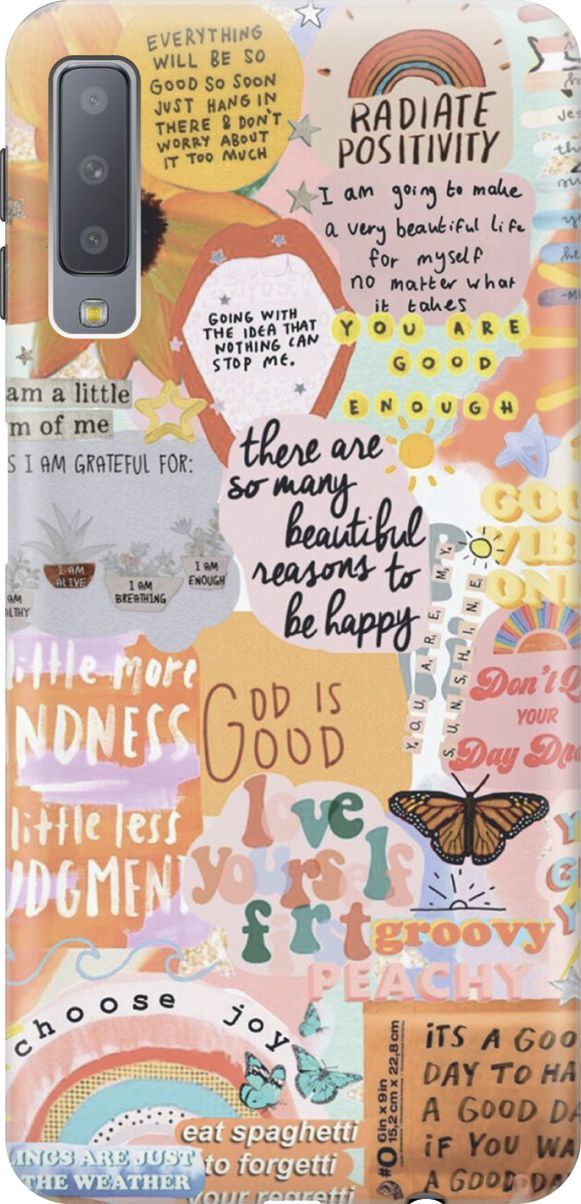 EVERYTHING
WILL BE SO
GOOD SO SOON
JUST HANG IN
THERE & DON'T
WORRY ABOUT
IT TOO MUCH
RADIATE
POSITIVITY
I am going to make
a very beautiful life
for myself
no matter what
it takes
GOING WITH
THE IDEA THAT
NOTHING CAN
STOP ME.
YOU ARE
GOOD
ENOUGH
am a little
m of me
S I AM GRATEFUL FOR:
I AM
ALIVE
I AM
BREATHING
I AM
ENOUGH
AM
ALTHY
there are
so many
beautiful
reasons to
be happy
GOO
VIB
ON
YOU ARE MY
SUNSHINE
little more
NDNESS
little less
UDGMENT
GOD IS
GOOD
Don't Q
YOUR
Day Dre
love
yourself
first
groovy
PEACHY
choose joy
#0 6in x 9in
15,2 cm x 22,8cm
iTS A GOO
DAY TO HA
A GOOD DA
iF YOU WA
A GOOD DA
eat spaghetti
to forgetti
your regretti
LINGS ARE JUST
THE WEATHER